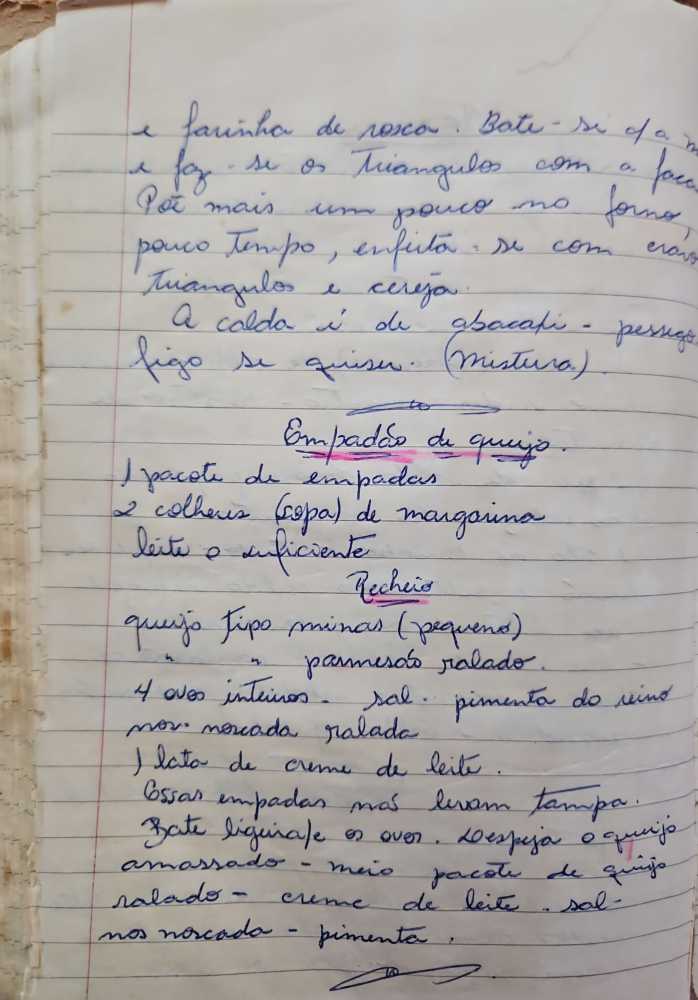 e farinha de rosca. Bate-se c/ a
e faz-se os triangulos com a faca
Põe mais um pouco no forno,
pouco tempo, enfeita-se com
triangulos e cereja.
A calda é de abacaxi - pessego
figo se quiser. (Mistura).
Empadão de queijo.
1 pacote de empadas
2 colheres (sopa) de margarina
leite o suficiente
Recheio
queijo tipo minas (pequeno)
" " parmesão ralado.
4 ovos inteiros - sal - pimenta do reino
noz-noscada ralada
1 lata de creme de leite.
Essas empadas não levam tampa.
Bate ligeira/e os ovos. Despeja o queijo
amassado - meio pacote de queijo
ralado - creme de leite - sal -
nos noscada - pimenta.